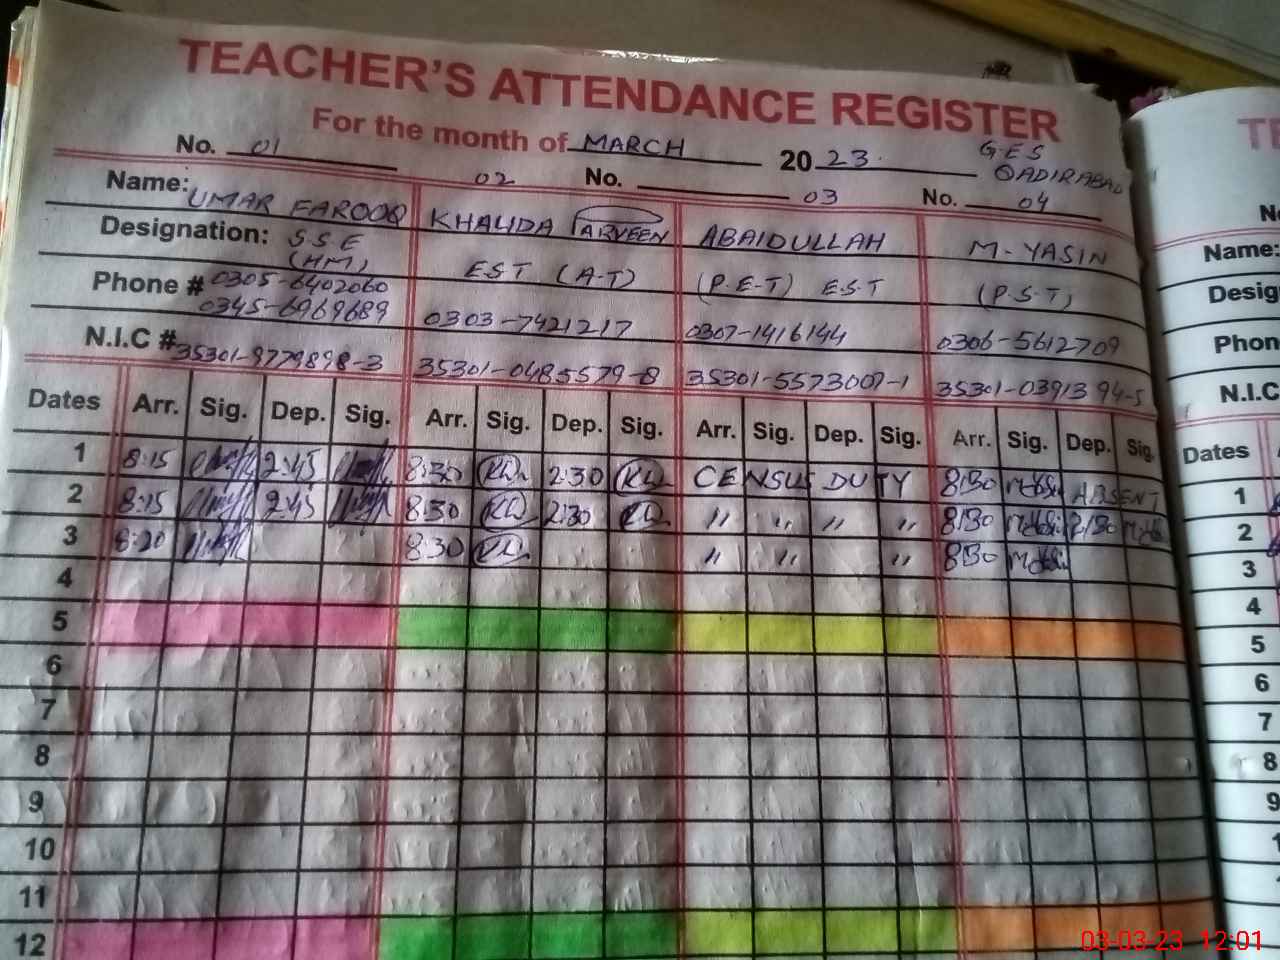 TEACHER'S ATTENDANCE REGISTER
For the month of MARCH 2023. G.E.S QADIRABAD
No. 01 02 No. 03 No. 04
Name: UMAR FAROOQ KHALIDA PARVEEN ABAIDULLAH M-YASIN
Designation: S.S.E (HM) EST (A-T) (P.E-T) EST (P.S.T)
Phone # 0305-6402060 0345-6969689 0303-7421217 0307-1416144 0306-5612709
N.I.C # 35301-9779898-3 35301-0485579-8 35301-5573007-1 35301-0391394-5
Dates Arr. Sig. Dep. Sig. Arr. Sig. Dep. Sig. Arr. Sig. Dep. Sig. Arr. Sig. Dep. Sig.
1 8:15 2:45 8:30 2:30 CENSUS DUTY 8:30 ABSENT
2 8:15 2:45 8:30 2:30 " " " " 8:30 2:30
3 8:20 8:30 " " " 8:30
4
5
6
7
8
9
10
11
12
Name:
Phon
N.I.C
Dates
1
2
3
4
5
6
7
8
9
03-03-23 12:01